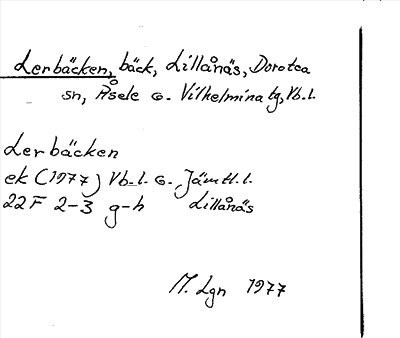 Lerbäcken, bäck, Lillånäs, Dorotea
sn, Åsele o. Vilhelmina tg, Vb. l.
Lerbäcken
ek (1977) Vb. l. o. Jämtl. l.
22F 2-3 g-h Lillånäs
M. Lgn 1977